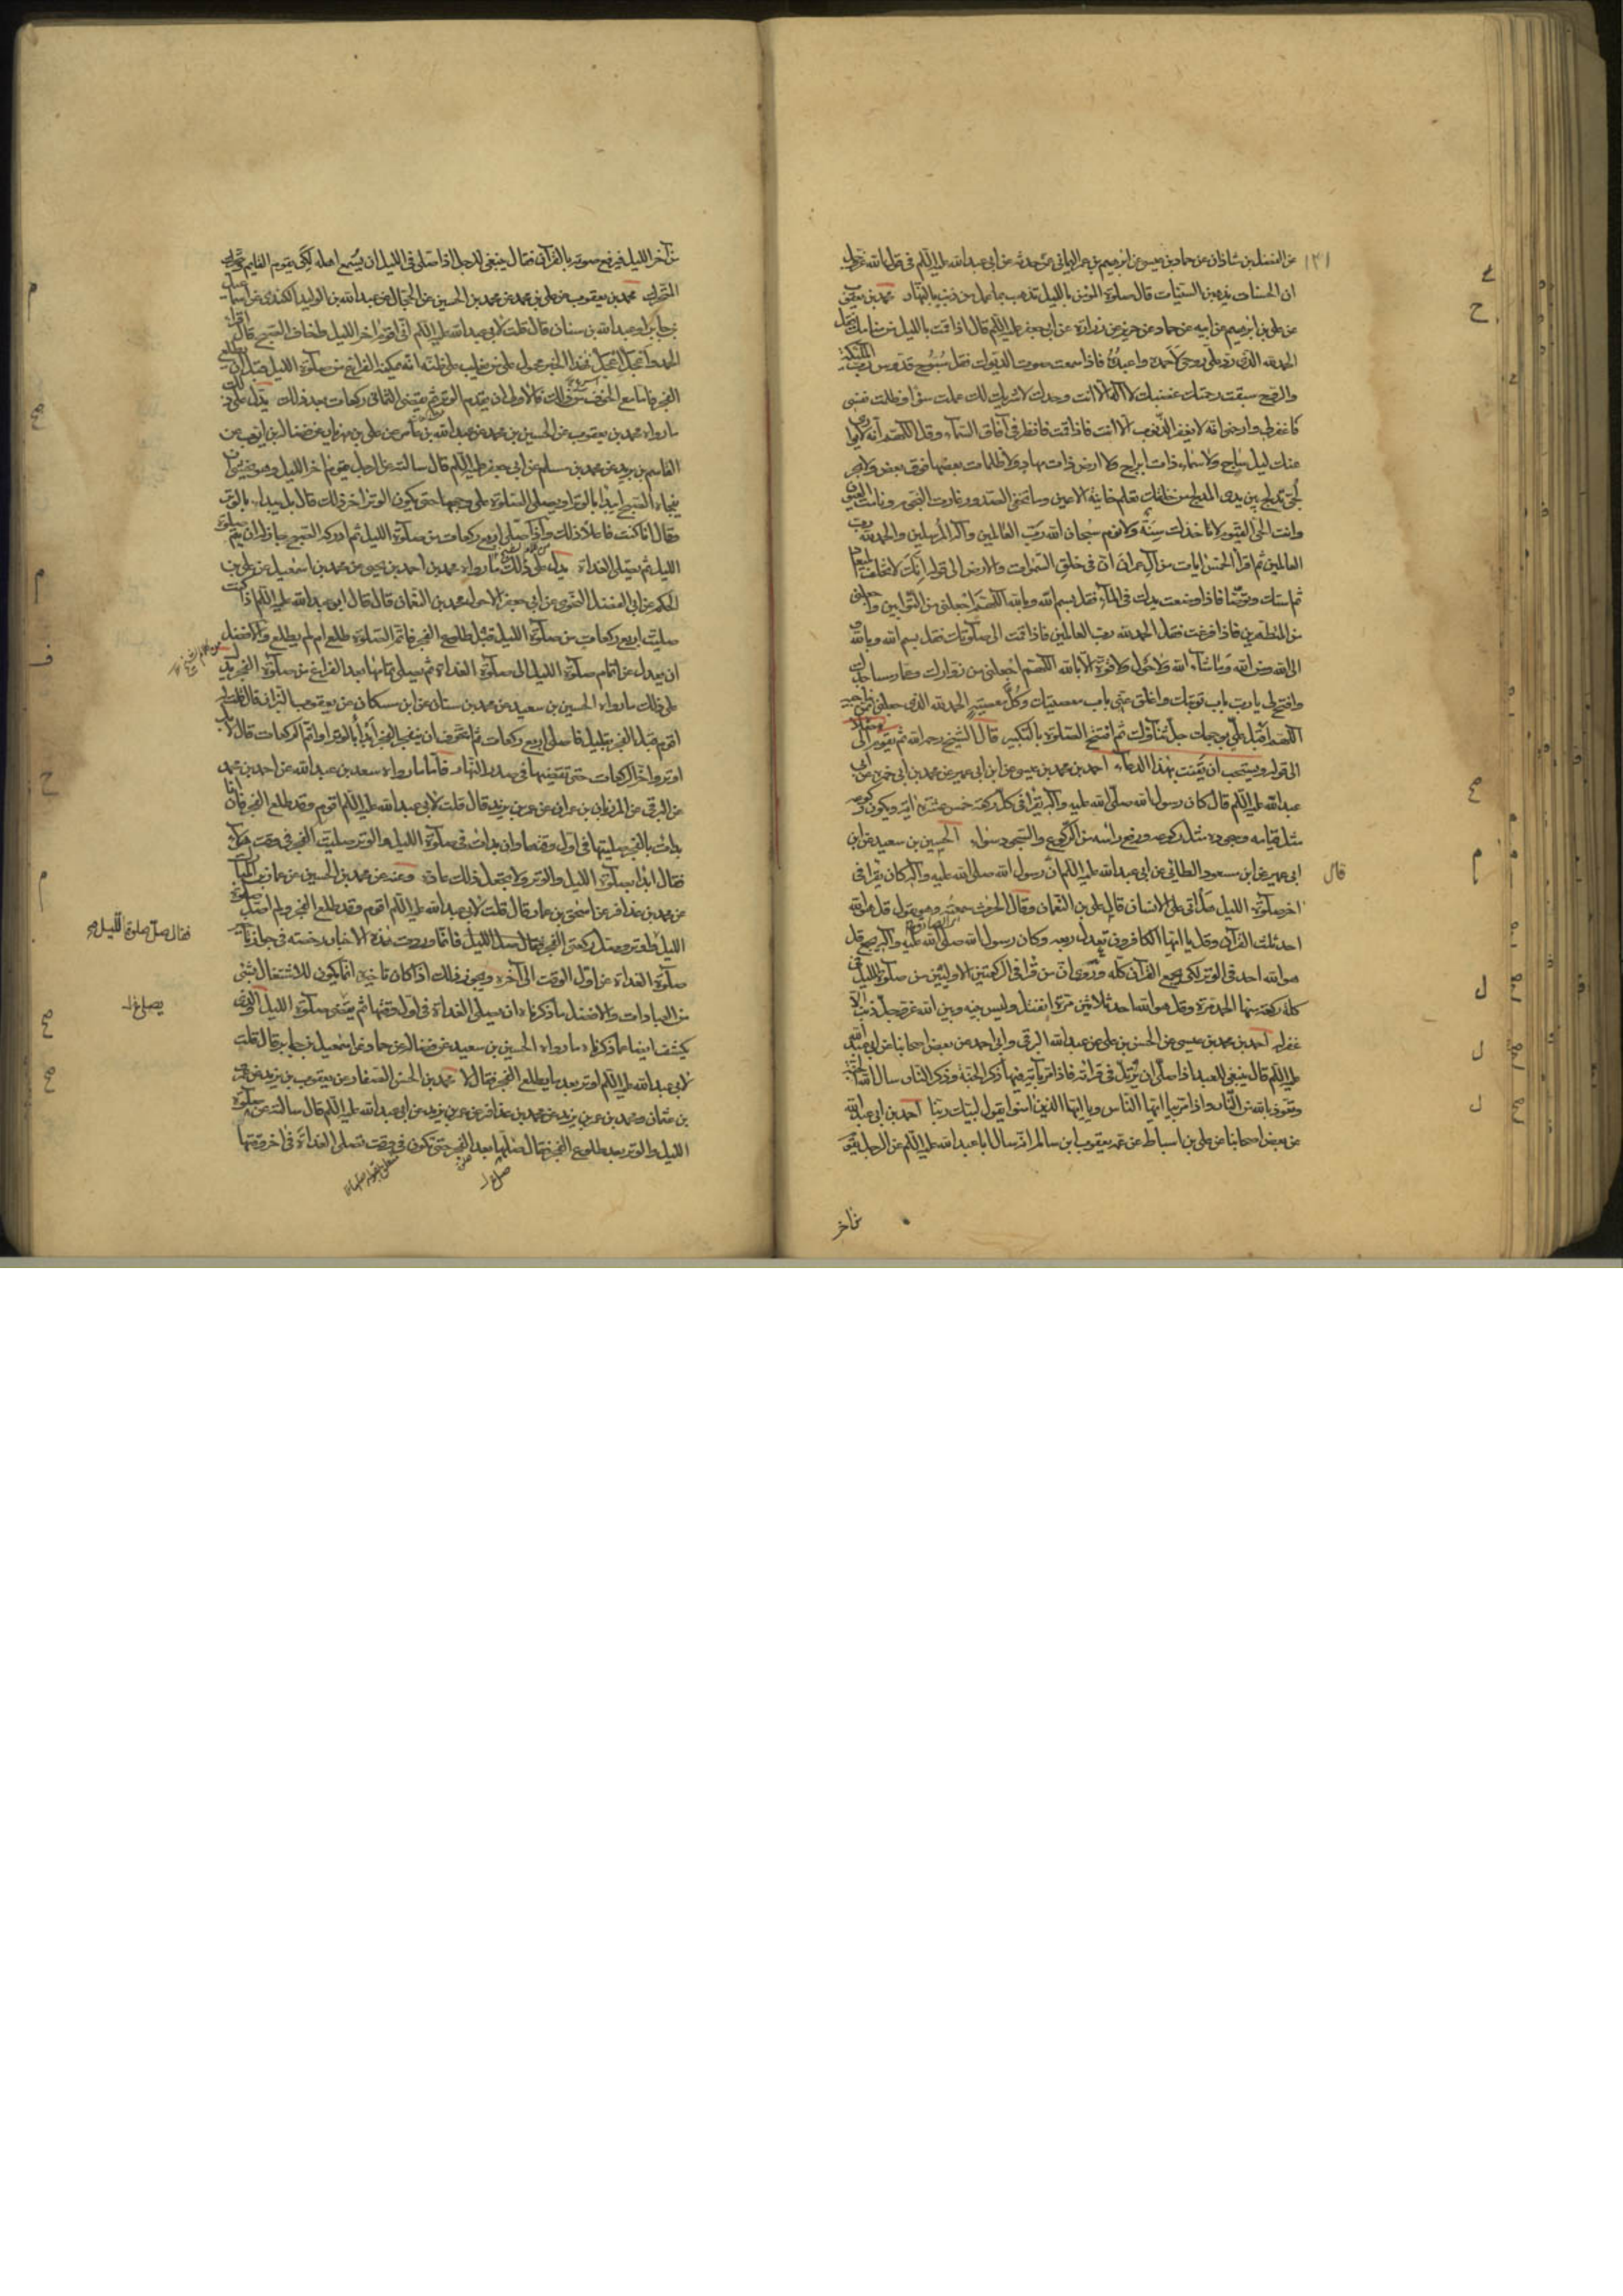 عن الفضل بن شاذان عن حماد بن عيسى عن ابرهيم بن عمر اليماني عمن حدثه عن ابي عبد الله عليه السلام في قول الله عز وجل
ان الحسنات يذهبن السيئات قال صلوة المؤمن بالليل تذهب بما عمل من ذنب بالنهار محمد بن يعقوب
عن علي بن ابرهيم عن ابيه عن حماد عن حريز عن زرارة عن ابي جعفر عليه السلام قال اذا قمت بالليل من منامك فقل
الحمد لله الذي رد علي روحي لاحمده واعبده فاذا سمعت صوت الديوك فقل سبوح قدوس رب الملئكة
والروح سبقت رحمتك غضبك لا اله الا انت وحدك لا شريك لك عملت سوءا وظلمت نفسي
فاغفر لي وارحمني انه لا يغفر الذنوب الا انت فاذا قمت فانظر في آفاق السماء وقل اللهم انه لا يوارى
عنك ليل ساج ولا سماء ذات ابراج ولا ارض ذات مهاد ولا ظلمات بعضها فوق بعض ولا بحر
لجي تدلج بين يدي المدلج من خلقك تعلم خائنة الاعين وما تخفي الصدور غارت النجوم ونامت العيون
وانت الحي القيوم لا تاخذك سنة ولا نوم سبحان الله رب العالمين واله المرسلين والحمد لله رب
العالمين ثم اقرا الخمس ايات من آل عمران ان في خلق السموات والارض الى قوله انك لا تخلف الميعاد
ثم استك وتوضا فاذا وضعت يدك في الماء فقل بسم الله وبالله اللهم اجعلني من التوابين واجعلني
من المتطهرين فاذا فرغت فقل الحمد لله رب العالمين فاذا قمت الى صلوتك فقل بسم الله وبالله
الى الله ومن الله وما شاء الله ولا حول ولا قوة الا بالله اللهم اجعلني من زوارك وعمار مساجدك
وافتح لي يا رب باب توبتك واغلق عني باب معصيتك وكل معصية الحمد لله الذي جعلني ممن يناجيه
اللهم اقبل علي بوجهك جل ثناؤك ثم افتتح الصلوة بالتكبير قال الشيخ رحمه الله ثم يقوم الى
الى قوله ويستحب ان يقنت بهذا الدعاء احمد بن محمد بن عيسى عن ابن ابي عمير عن محمد بن ابي حمزة عن ابي
عبد الله عليه السلام قال كان رسول الله صلى الله عليه وآله يقرا في كل ركعة خمس عشرة اية ويكون ركوعه
مثل قيامه وسجوده مثل ركوعه ورفع راسه من الركوع والسجود سواء الحسين بن سعيد عن ابن
ابي عمير عن ابن مسعود الطائي عن ابي عبد الله عليه السلام ان رسول الله صلى الله عليه وآله كان يقرا في
اخر صلوة الليل هل اتى على الانسان قال علي بن النعمان وقال الحارث سمعته وهو يقول قل هو الله
احد ثلث القرآن وقل يا ايها الكافرون تعدل ربعه وكان رسول الله صلى الله عليه وآله يجمع قل
هو الله احد في الوتر لكي يجمع القرآن كله وروي ان من قرا في الركعتين الاوليين من صلوة الليل في
كل ركعة منهما الحمد مرة وقل هو الله احد ثلاثين مرة انفتل وليس بينه وبين الله عز وجل ذنب الا
غفر له احمد بن محمد بن عيسى عن الحسن بن علي عن عبد الله البرقي وابي احمد عن بعض اصحابنا عن ابي عبد الله
عليه السلام قال ينبغي للعبد اذا صلى ان يرتل في قراءته فاذا مر باية فيها ذكر الجنة وذكر النار سال الله الجنة
وتعوذ بالله من النار واذا مر بيا ايها الناس ويا ايها الذين امنوا يقول لبيك ربنا احمد بن ابي عبد الله
عن بعض اصحابنا عن علي بن اسباط عن عمه يعقوب بن سالم انه سال ابا عبد الله عليه السلام عن الرجل يقوم
من اخر
قال
١٣١
من آخر الليل فيرفع صوته بالقرآن فقال ينبغي للرجل اذا صلى في الليل ان يسمع اهله لكي يقوم القايم ويتحرك
المتحرك محمد بن يعقوب عن علي بن محمد عن محمد بن الحسين عن الحجال عن عبد الله بن الوليد الكندي عن اسماعيل
بن جابر او عبد الله بن سنان قال قلت لابي عبد الله عليه السلام اني اقوم اخر الليل واخاف الصبح قال اقرا
الحمد واعجل اعجل فهذا الخبر محمول على من يغلب على ظنه انه يمكنه الفراغ من صلوة الليل قبل ان يطلع
الفجر فاما مع الخوف من ذلك فالاولى ان يقدم الوتر ثم يقضي الثماني ركعات بعد ذلك يدل على ذلك
ما رواه محمد بن يعقوب عن الحسين بن محمد عن عبد الله بن عامر عن علي بن مهزيار عن فضالة بن ايوب عن
القاسم بن بريد عن محمد بن مسلم عن ابي جعفر عليه السلام قال سالته عن الرجل يقوم اخر الليل وهو يخشى ان
يفجاه الصبح ايبدا بالوتر او يصلي الصلوة على وجهها حتى يكون الوتر اخر ذلك قال بل يبدا بالوتر
وقال انا كنت فاعلا ذلك واذا صلى اربع ركعات من صلوة الليل ثم ادركه الصبح جاز له ان يتم صلوة
الليل ثم يصلي الغداة يدل على ذلك ما رواه محمد بن احمد بن يحيى عن محمد بن اسمعيل عن علي بن
الحكم عن ابي الفضل النحوي عن ابي جعفر الاحول محمد بن النعمان قال قال ابو عبد الله عليه السلام اذا كنت
صليت اربع ركعات من صلوة الليل قبل طلوع الفجر فاتم الصلوة طلع ام لم يطلع والافضل
ان يعدل عن اتمام صلوة الليل الى صلوة الغداة ثم يصلي تمامها بعد الفراغ من صلوة الفجر يدل
على ذلك ما رواه الحسين بن سعيد عن محمد بن سنان عن ابن مسكان عن يعقوب البزاز قال قلت له
اقوم قبل الفجر بقليل فاصلي اربع ركعات ثم اتخوف ان ينفجر الفجر ابدا بالوتر او اتم الركعات قال لا بل
اوتر واخر الركعات حتى تقضيها في صدر النهار فاما ما رواه سعد بن عبد الله عن احمد بن محمد
عن البرقي عن المرزبان بن عمران عن عمر بن يزيد قال قلت لابي عبد الله عليه السلام اقوم وقد طلع الفجر فان انا
بدات بالفجر صليتها في اول وقتها وان بدات في صلوة الليل والوتر صليت الفجر في وقت هؤلاء
فقال ابدا بصلوة الليل والوتر ولا تجعل ذلك عادة وعنه عن محمد بن الحسين عن
عن محمد بن عذافر عن اسحق بن عمار قال قلت لابي عبد الله عليه السلام اقوم وقد طلع الفجر ولم اصل صلوة
الليل فقال صل صلوة الليل واوتر وصل ركعتي الفجر فانما وردت هذه الاخبار رخصة في جواز تاخير
صلوة الغداة عن اول الوقت الى آخره ويجوز ذلك اذا كان تاخيره انما يكون للاشتغال بشئ
من العبادات والافضل ما ذكرناه ان يصلي الغداة في اول وقتها ثم يقضي صلوة الليل والذي
يكشف ايضا عما ذكرناه ما رواه الحسين بن سعيد عن فضالة عن حماد عن اسمعيل بن جابر قال قلت
لابي عبد الله عليه السلام اوتر بعد ما يطلع الفجر فقال لا محمد بن الحسن الصفار عن يعقوب بن يزيد عن عمرو
بن عثمان ومحمد بن عمر بن يزيد عن محمد بن عذافر عن عمر بن يزيد عن ابي عبد الله عليه السلام قال سالته عن صلوة
الليل والوتر بعد طلوع الفجر فقال صلها بعد الفجر حتى تكون في وقت تصلي الغداة في اخر وقتها
فقال صل صلوة الليل